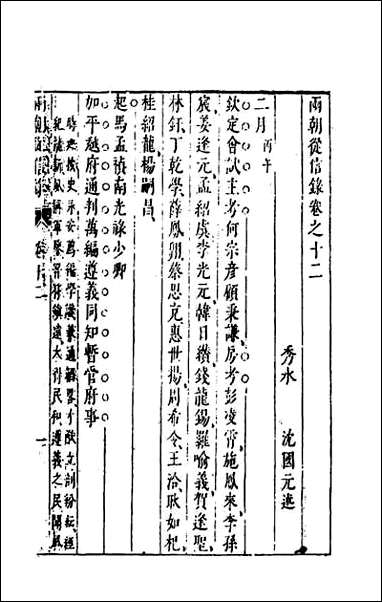 兩朝從信錄卷之十二
秀水 沈國元述
二月丙午
欽定會試主考何宗彥顧秉謙房考彭凌霄施鳳來李孫
宸姜逢元孟紹虞李光元韓日纘錢龍錫羅喻義賀逢聖
林釬丁乾學薛鳳翔蔡思充惠世揚周希令王洽耿如杞
桂紹龍楊嗣昌
起馬孟禎南光祿少卿
加平越府通判萬編遵義同知暫管府事
大得民和遵義之民
兩朝從信錄 卷十二 一